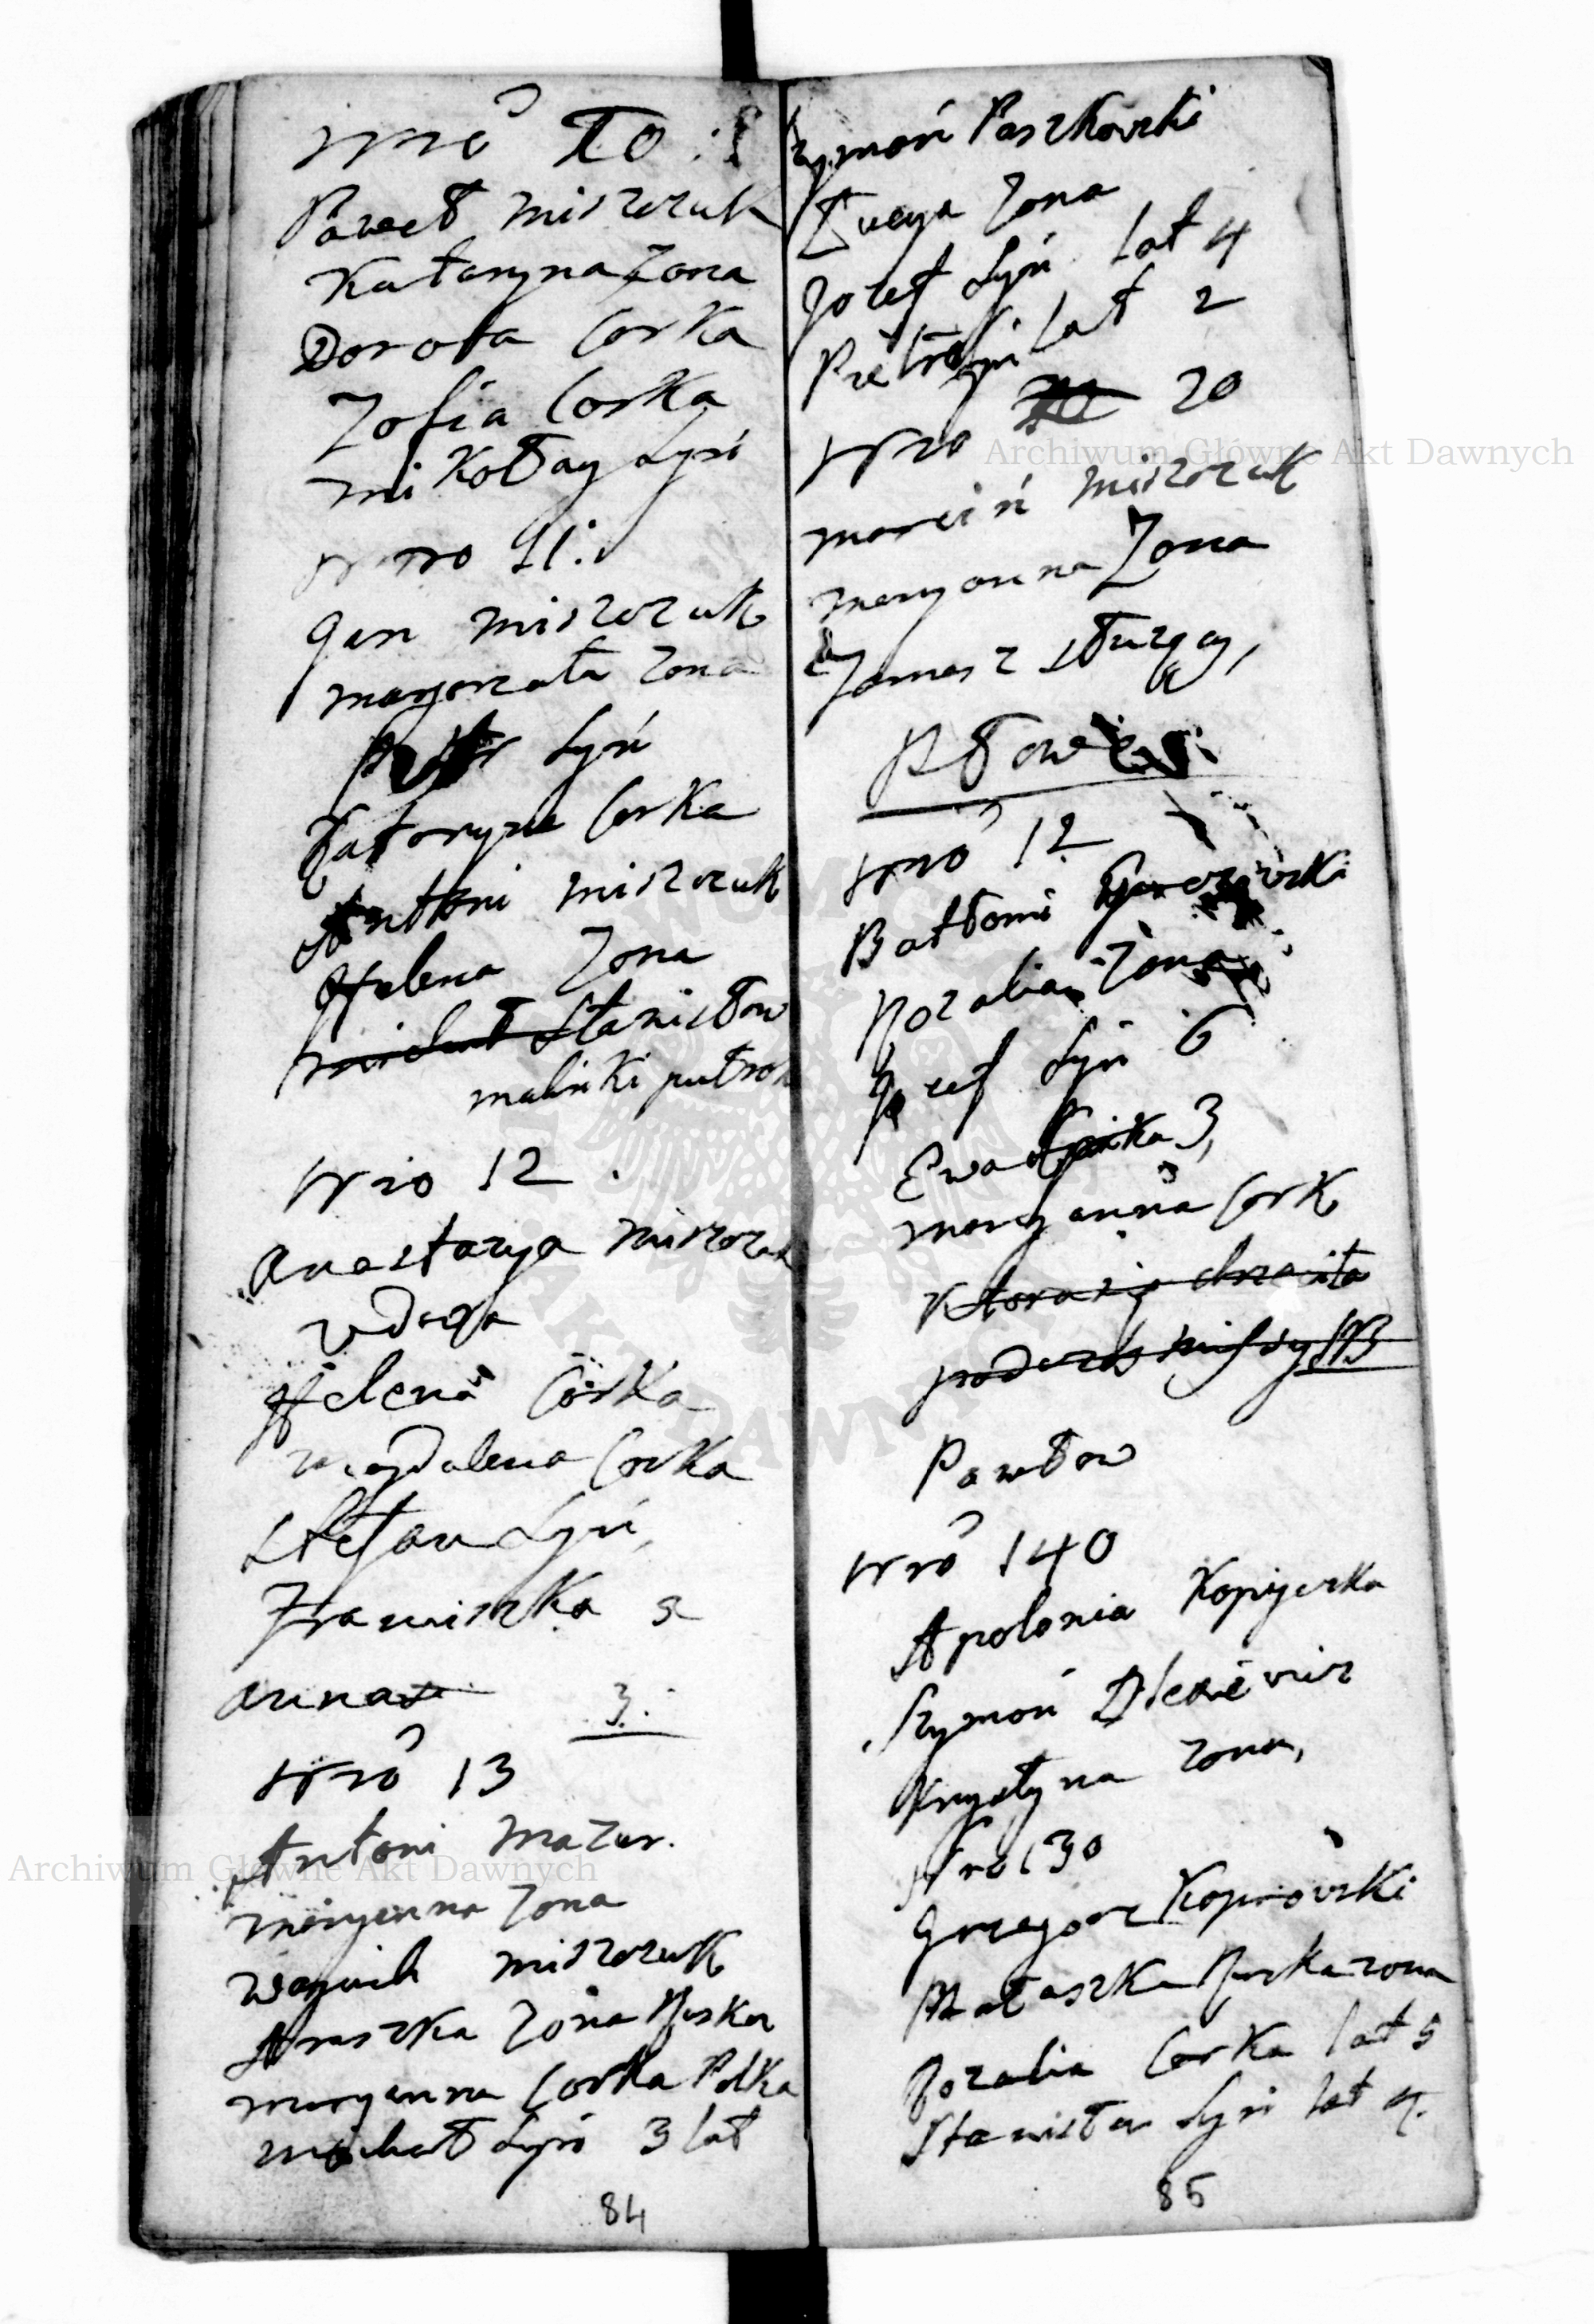 nrio 10 :
Paweł Misczuk
Kataryna Zona
Dorota Corka
Zofia Corka
mikołay Syn
nrro 11.
Jan Misczuk
margorzata Zona
Piotr Syn
Kataryna Corka
Antoni Misczuk
Helena Zona
~~michał~~ Stanisław
maliki
nrio 12 .
Anastazya
wdowa
Helena Corka
magdalena Corka
Stefan Syn,
Franciszka
anna 3.
nrró 13
Antoni Mazur.
maryanna Zona
Woyciech misczuk
Anaszka Zona Ruska
maryanna Corka Polka
michał Syn 3 lat
84
Szymoń Paszkovski
Łucya Zona
Jozef Syn Lat 4
Piotr Syn Lat 2
nro 20
marciń misczuk
maryanna Zona
Tomasz sługą,
nró 12
Batłomi
Rozalia Zona
Jozef Syn 6
Ewa Corka 3,
maryanna Cork
~~Ktora się~~
Pawłow
nró 140
Apolonia
Szymoń
Krystyna zona,
Nro 130
Grzegorz Koprowski
Nataszka Ruska zona
Rozalia Corka lat 5
Stanisław Syn lat 4.
85
Archiwum Główne Akt Dawnych
Archiwum Główne Akt Dawnych